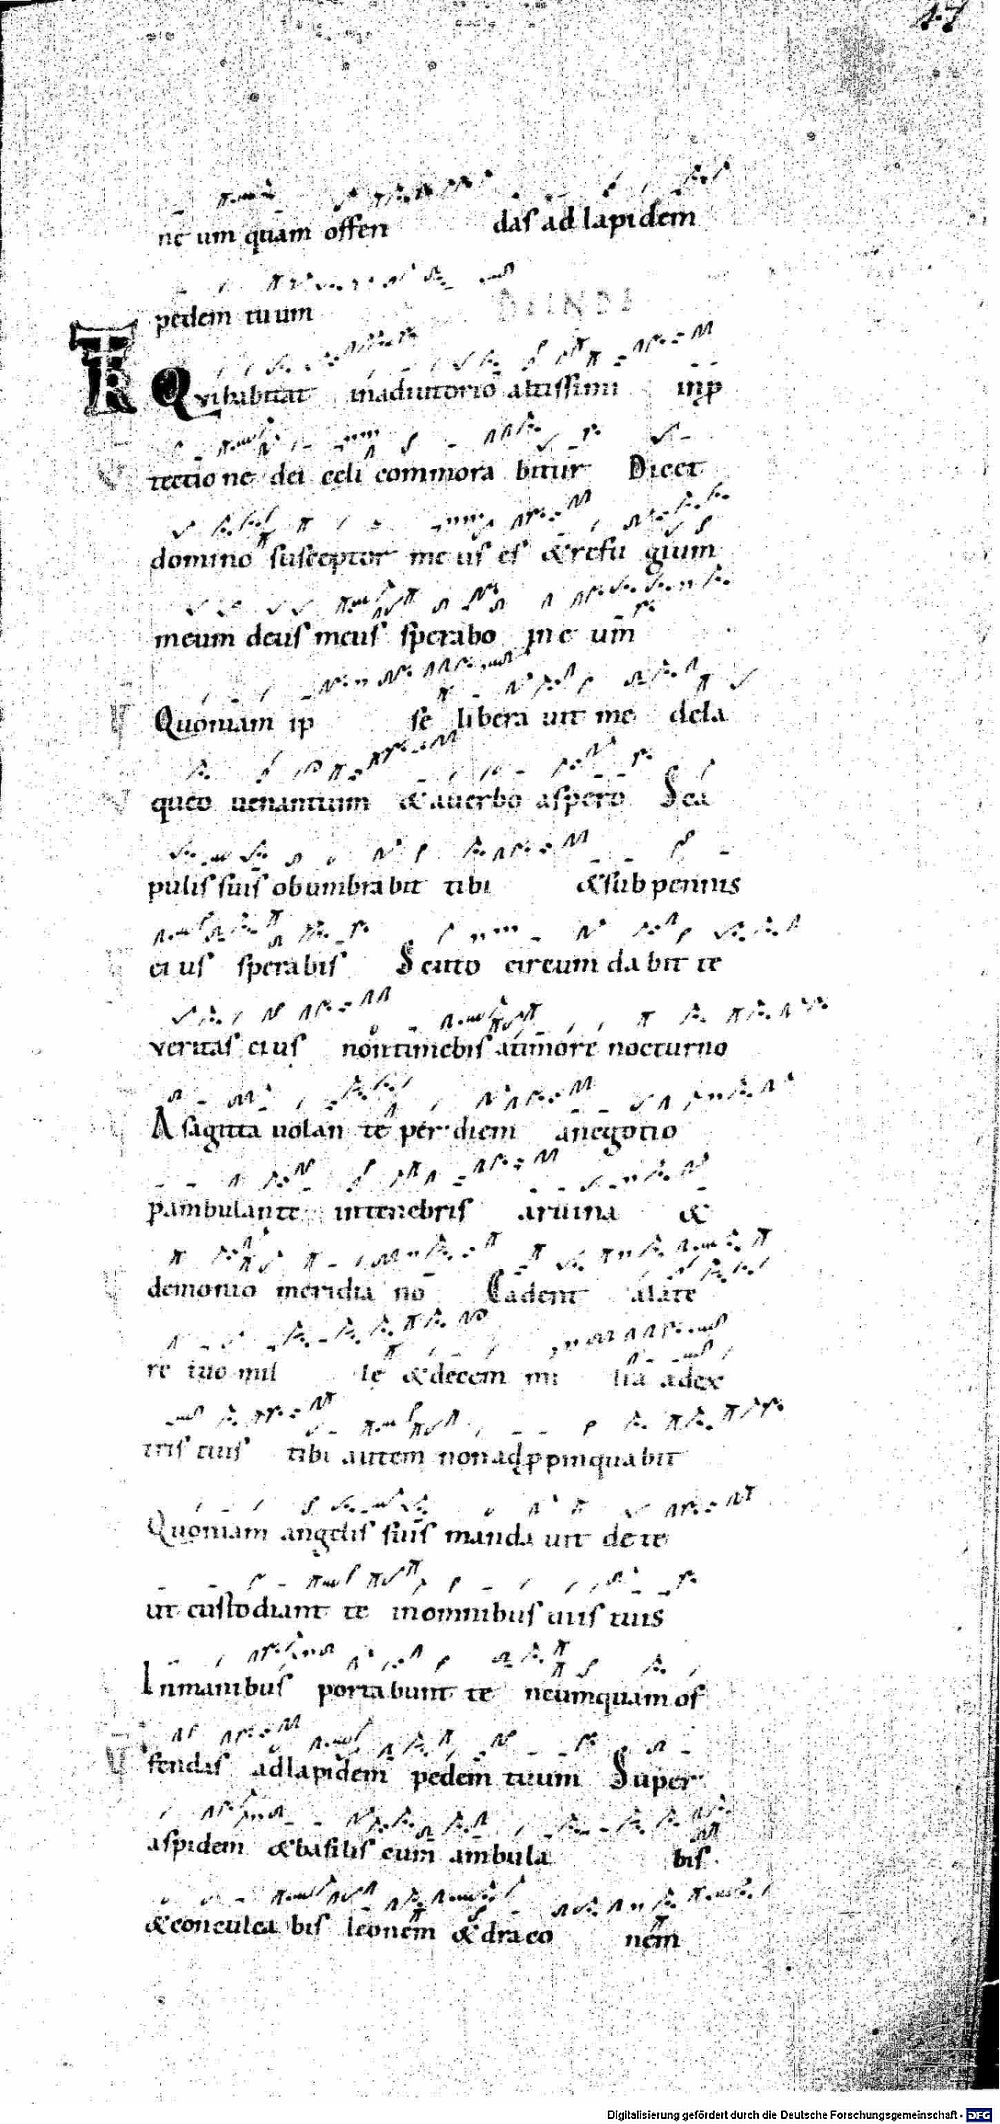 47
ne um quam offen daſ ad lapidem
pedem tuum
TR Qui habitat inadiutorio altiſſimi inp
tectio ne dei celi commora bitur Dicet
domino ſuſceptor me uſ eſ &refu gium
meum deuſ meuſ ſperabo ine um
Quoniam ip ſe libera uit me dela
queo uenantium &auerbo aſpero Sca
puliſ ſuiſ obumbra bit tibi &ſub pennis
ei uſ ſperabiſ Scuto circum da bit te
veritaſ ei uſ nontimebiſ atimore nocturno
A ſagitta uolan te per diem anegotio
pambulante intenebriſ aruina &
demonio meridia no Cadent alate
re tuo mil le &decem mi lia adex
triſ tuiſ tibi autem nonadppinquabit
Quoniam angeliſ ſuiſ manda uit de te
ut cuſtodiant te inomnibuſ uiiſ tuis
Inmanibuſ portabunt te neumquam of
fendaſ adlapidem pedem tuum Super
aſpidem &baſiliſ cum ambula biſ
&conculca biſ leonem &draco nem
Digitalisierung gefördert durch die Deutsche Forschungsgemeinschaft - DFG